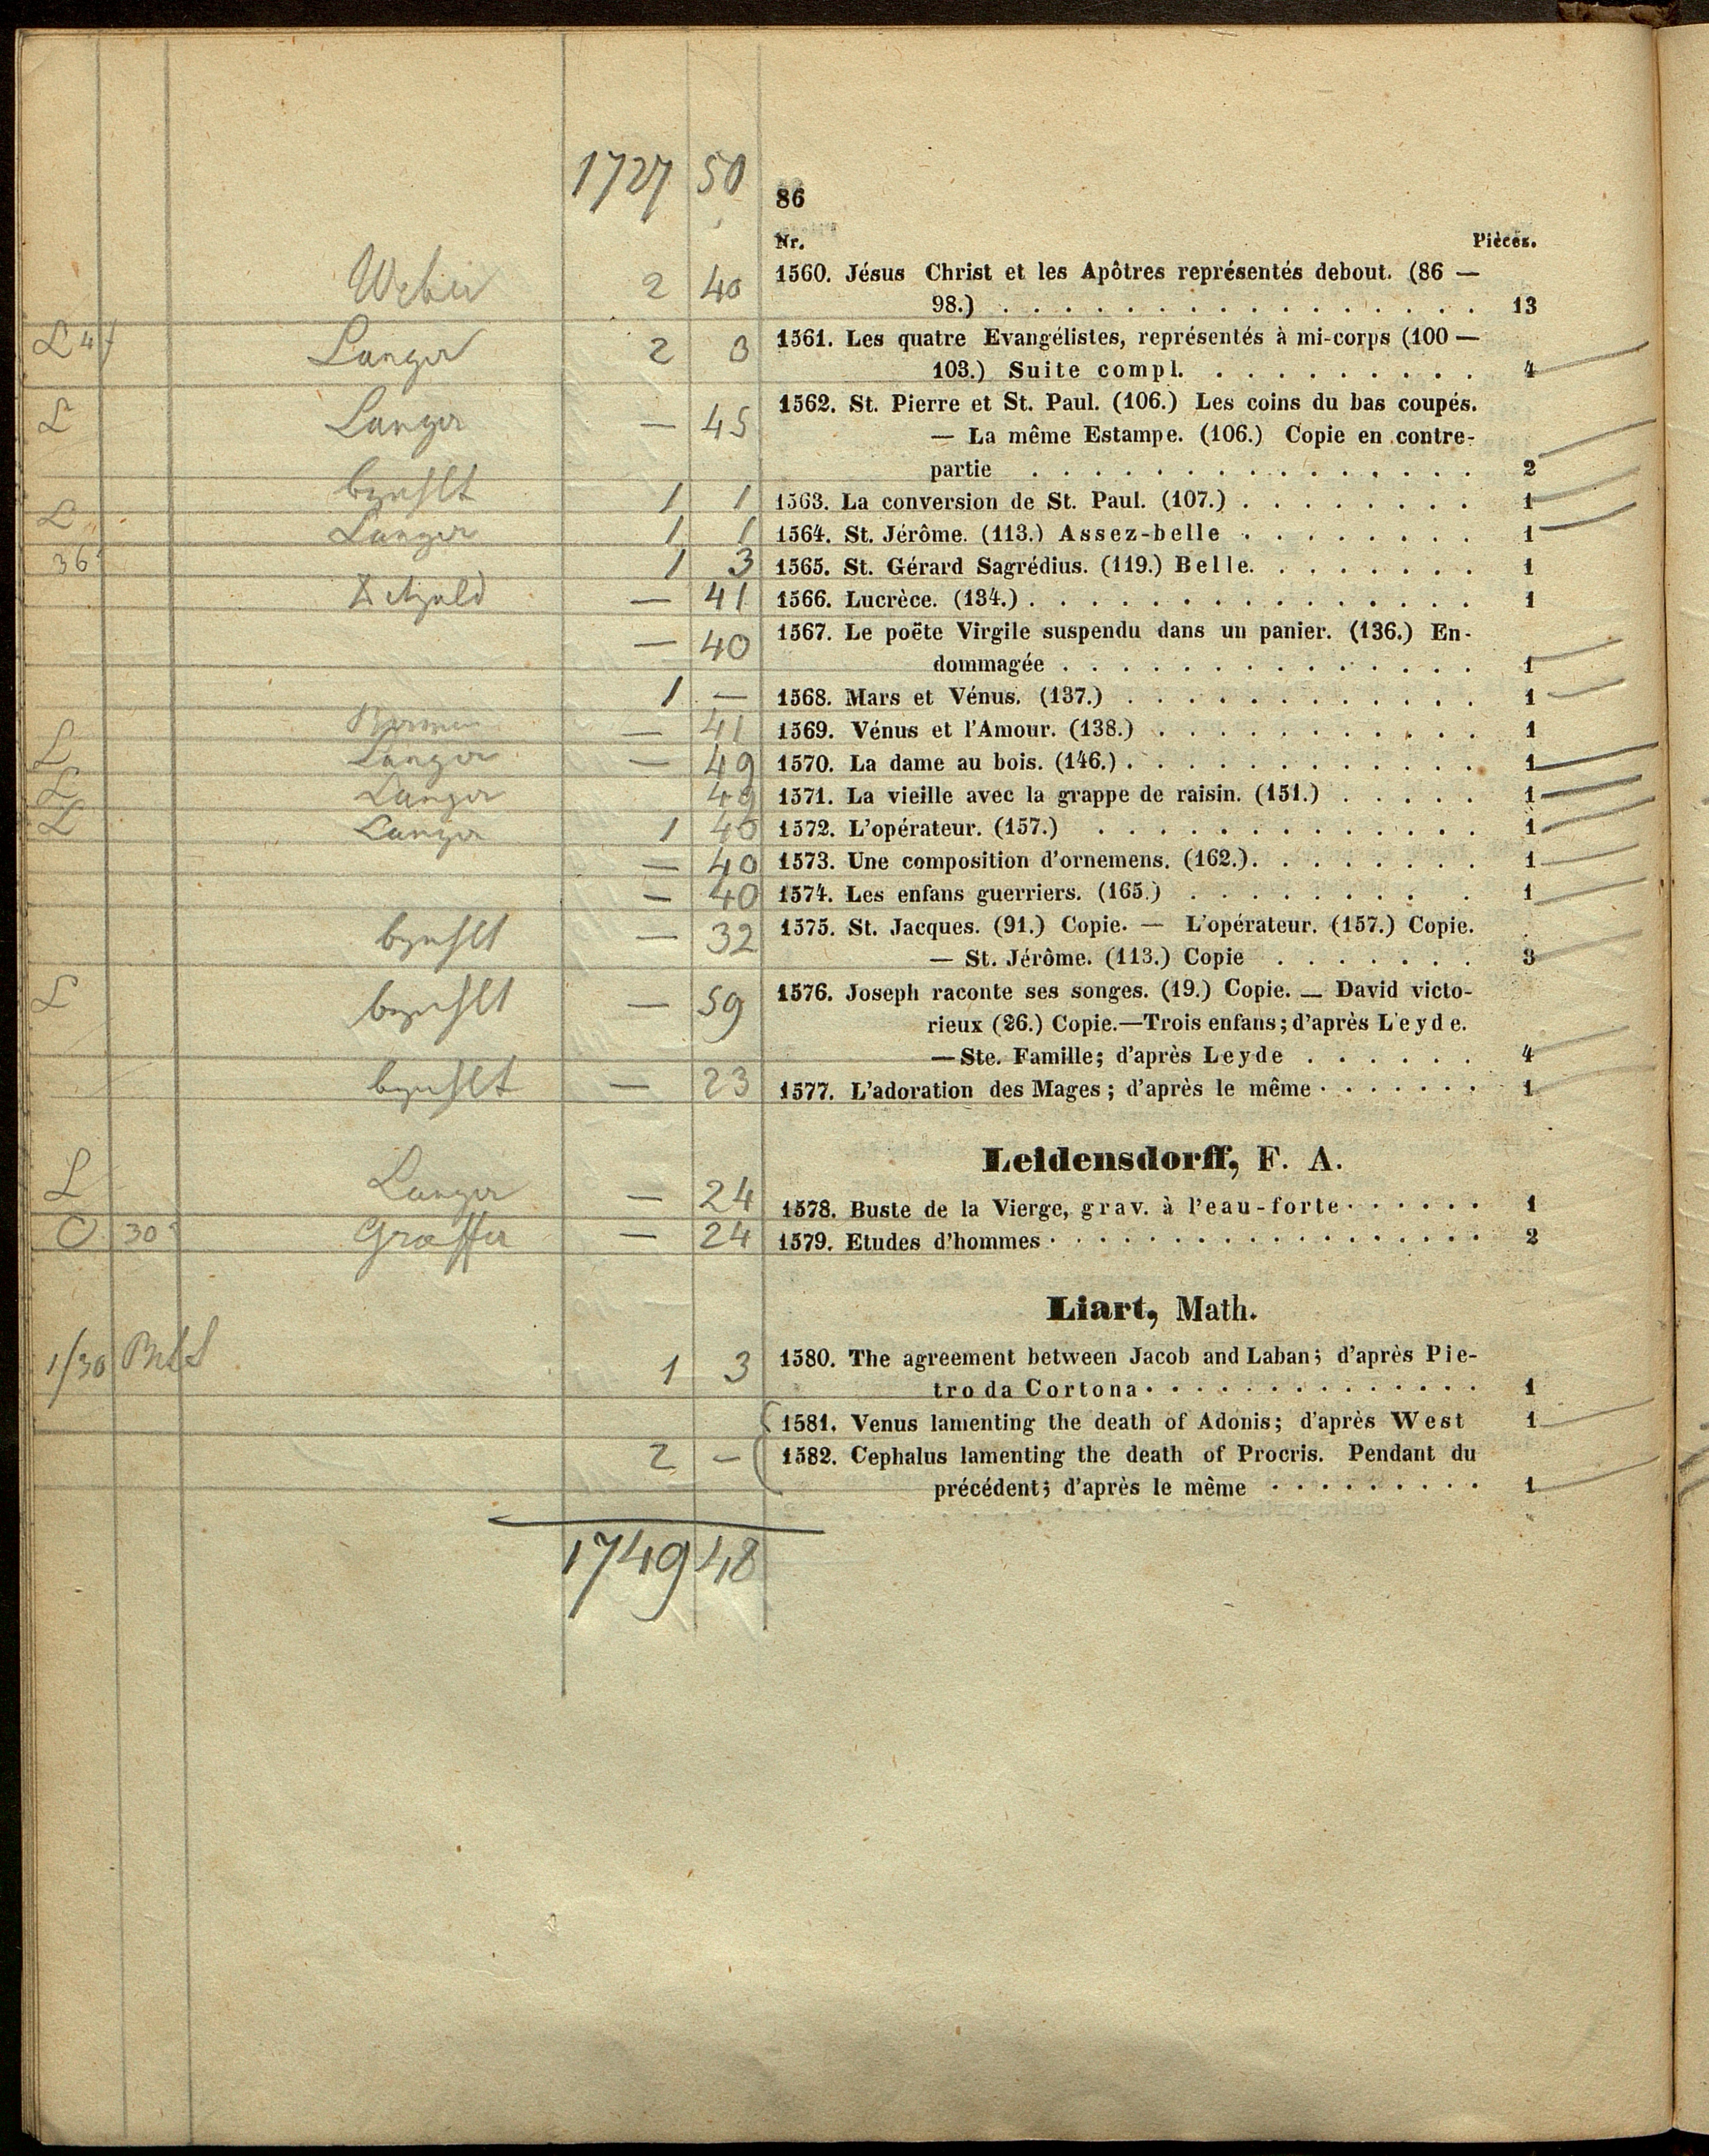 1727 50
86
Nr. Pièces.
Weber 2 40 1560. Jésus Christ et les Apôtres représentés debout. (86 —
98.) . . . . . . . . . . . . . . . . . 13
L 4f Langer 2 3 1561. Les quatre Evangélistes, représentés à mi-corps (100 —
103.) Suite compl. . . . . . . . . . 4
L Langer — 45 1562. St. Pierre et St. Paul. (106.) Les coins du bas coupés.
— La même Estampe. (106.) Copie en contre-
partie . . . . . . . . . . . . . . . 2
1 1 1563. La conversion de St. Paul. (107.) . . . . . . . . 1
L Langer 1 1 1564. St. Jérôme. (113.) Assez-belle . . . . . . . . 1
36 1 3 1565. St. Gérard Sagrédius. (119.) Belle. . . . . . . . 1
— 41 1566. Lucrèce. (134.) . . . . . . . . . . . . . . . 1
— 40 1567. Le poëte Virgile suspendu dans un panier. (136.) En-
dommagée . . . . . . . . . . . . . . 1
1 — 1568. Mars et Vénus. (137.) . . . . . . . . . . . . 1
— 41 1569. Vénus et l'Amour. (138.) . . . . . . . . . . . 1
L Langer — 49 1570. La dame au bois. (146.) . . . . . . . . . . . . 1
L Langer 49 1571. La vieille avec la grappe de raisin. (151.) . . . . . 1
L Langer 1 40 1572. L'opérateur. (157.) . . . . . . . . . . . . . 1
— 40 1573. Une composition d'ornemens. (162.) . . . . . . . . 1
— 40 1574. Les enfans guerriers. (165.) . . . . . . . . . 1
— 32 1575. St. Jacques. (91.) Copie. — L'opérateur. (157.) Copie.
— St. Jérôme. (113.) Copie . . . . . . . 3
L — 59 1576. Joseph raconte ses songes. (19.) Copie. — David victo-
rieux (26.) Copie.—Trois enfans; d'après Leyde.
—Ste. Famille; d'après Leyde . . . . . . 4
— 23 1577. L'adoration des Mages; d'après le même . . . . . . . 1
Leidensdorff, F. A.
L Langer — 24 1578. Buste de la Vierge, grav. à l'eau-forte . . . . . . 1
O 30 Graffer — 24 1579. Etudes d'hommes . . . . . . . . . . . . . . . . . 2
Liart, Math.
1/30 1 3 1580. The agreement between Jacob and Laban; d'après Pie-
tro da Cortona . . . . . . . . . . . . . . 1
1581. Venus lamenting the death of Adonis; d'après West 1
2 — 1582. Cephalus lamenting the death of Procris. Pendant du
précédent; d'après le même . . . . . . . . . 1
1749 48